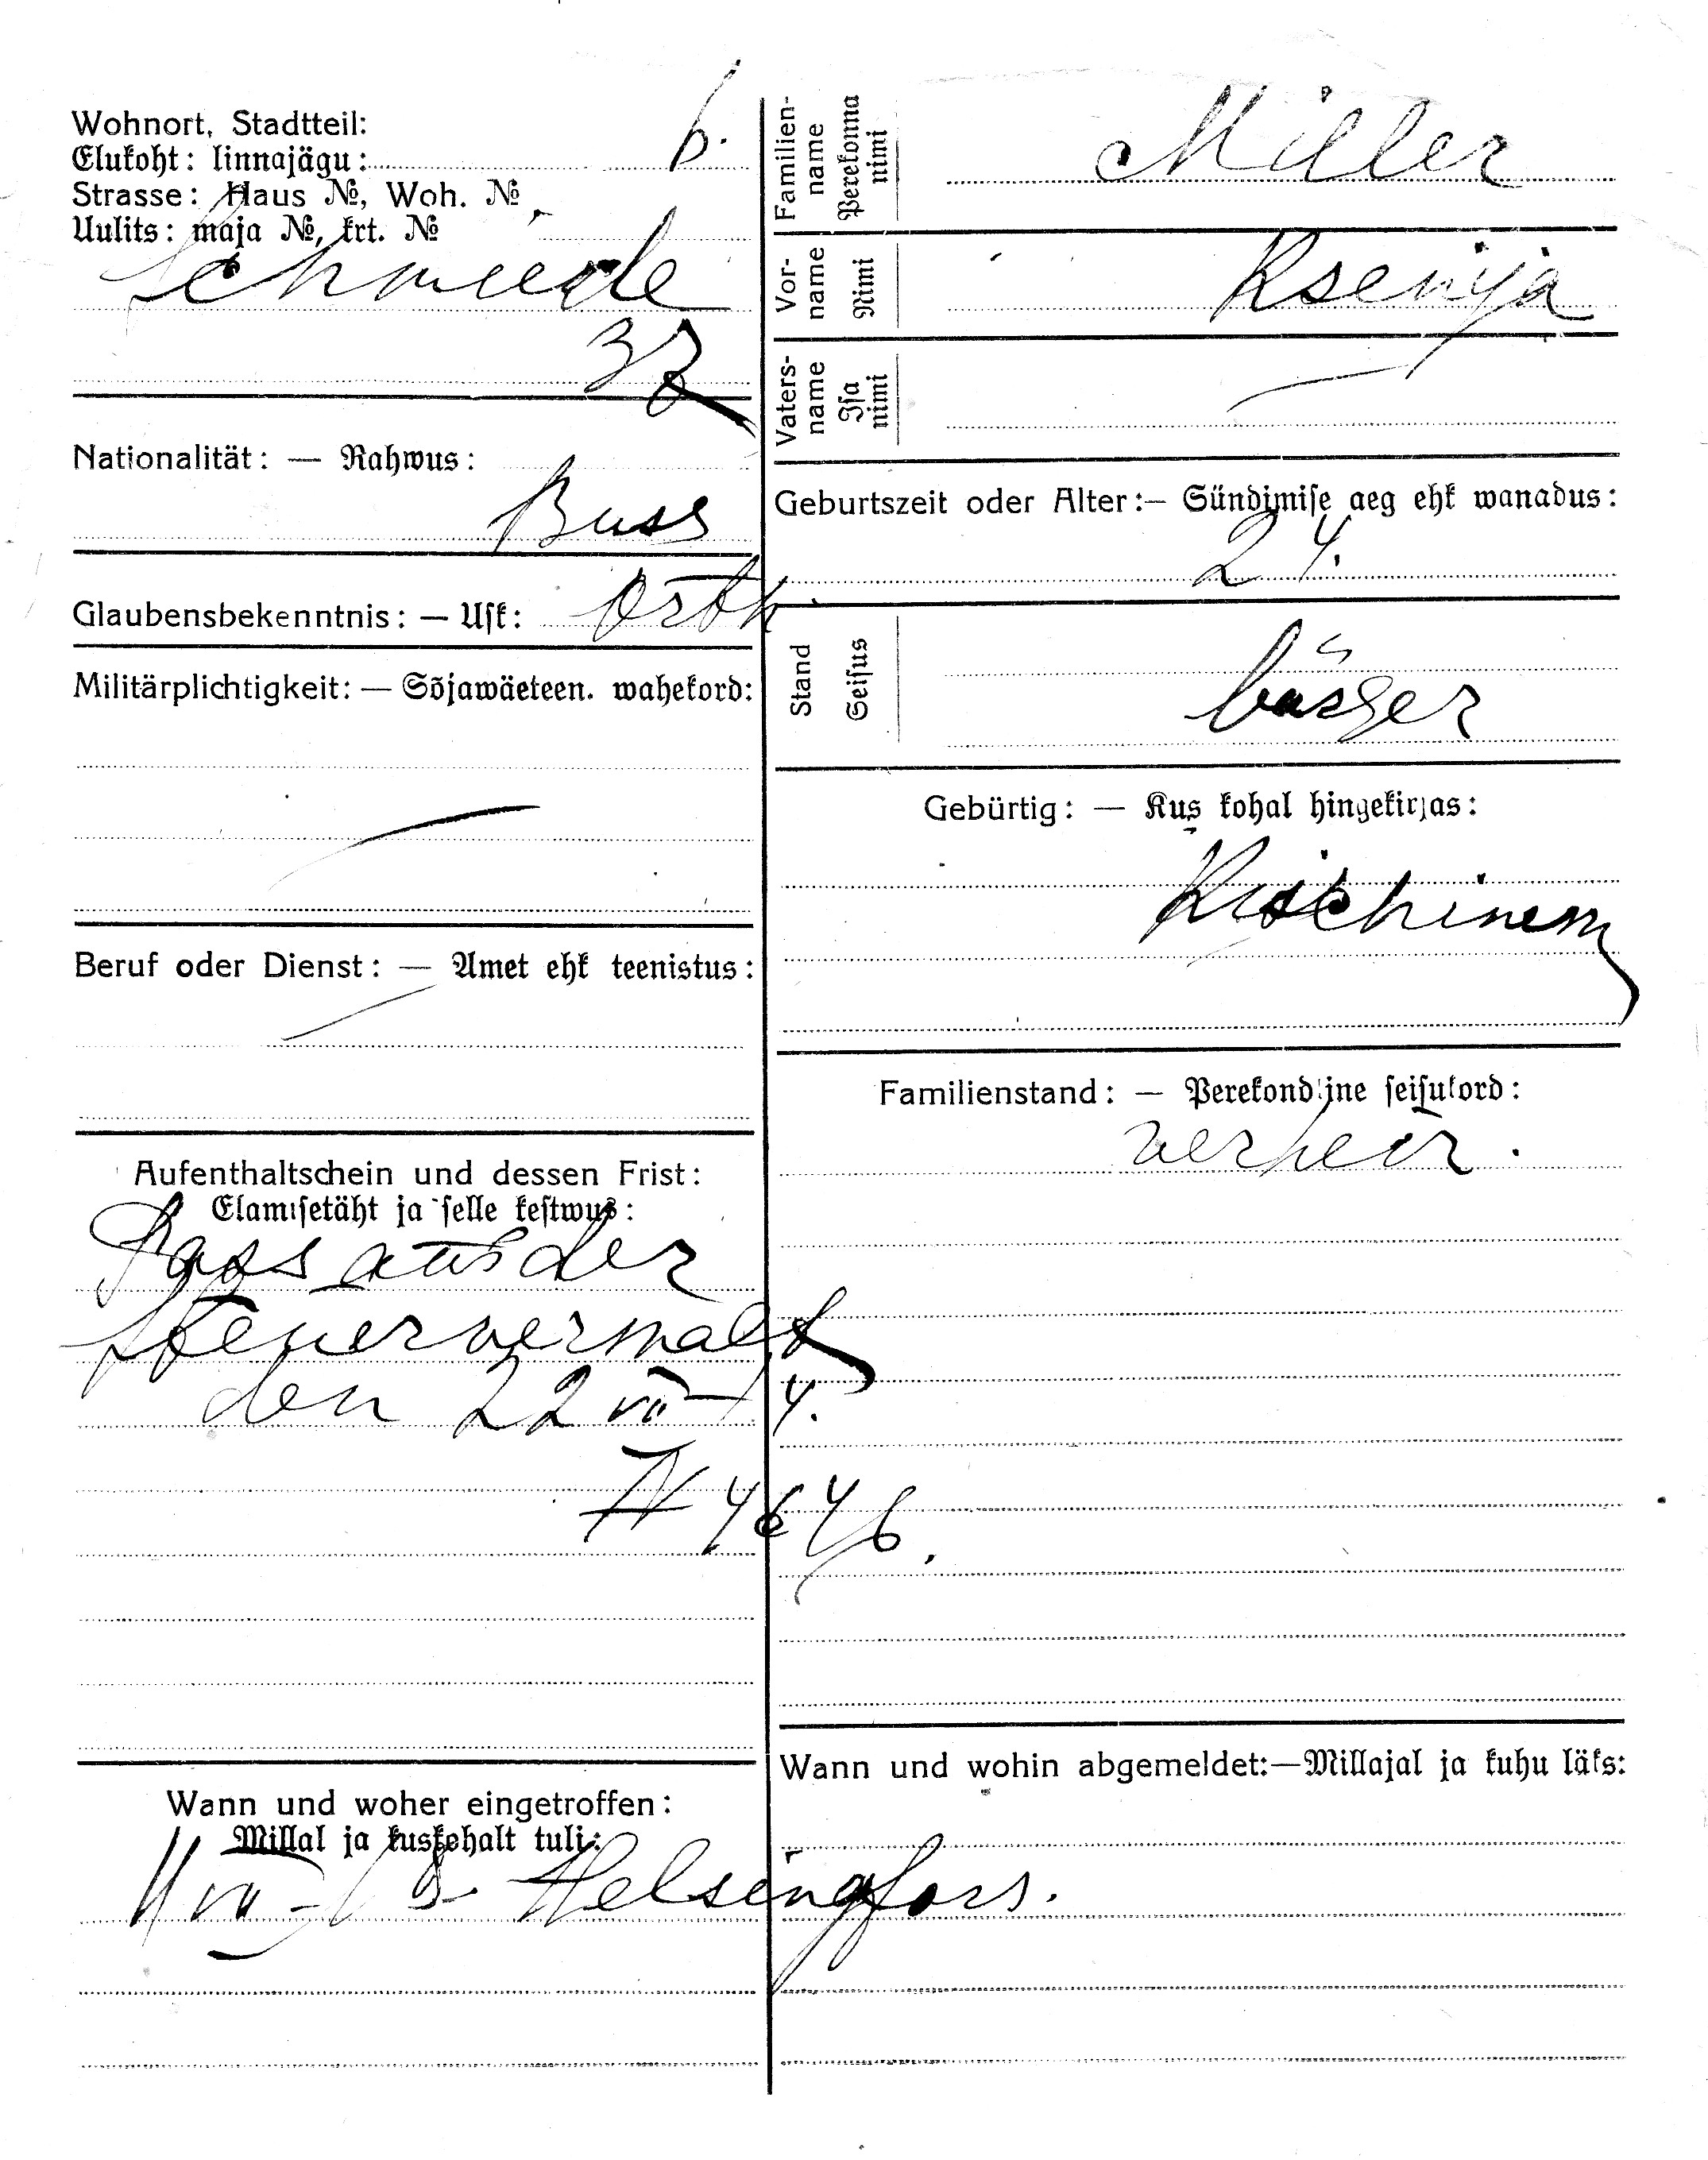 Wohnort, Stadtteil:
Elukoht: linnajägu: 6.
Strasse: Haus №, Woh. №
Uulits: maja №, krt. №
Schmiede
37
Nationalität: — Rahwus:
Russ
Glaubensbekenntnis: — Usk: Orth
Militärplichtigkeit: — Sõjawäeteen. wahekord:
Beruf oder Dienst: — Amet ehk teenistus:
Aufenthaltschein und dessen Frist:
Elamisetäht ja selle kestwus:
Pass aus der
Steuerverwalt
den 22 VII - 14.
N 4646.
Wann und woher eingetroffen:
Millal ja kuskohalt tuli:
Helsingfors.
Familien-name Perekonna nimi
Miller
Vor-name Nimi
Ksenija
Vaters-name Isa nimi
Geburtszeit oder Alter:— Sündimise aeg ehk wanadus:
24.
Stand Seisus
bürger
Gebürtig: — Kus kohal hingekirjas:
Kischinew
Familienstand: — Perekondline seisukord:
verheir.
Wann und wohin abgemeldet:—Millajal ja kuhu läks: